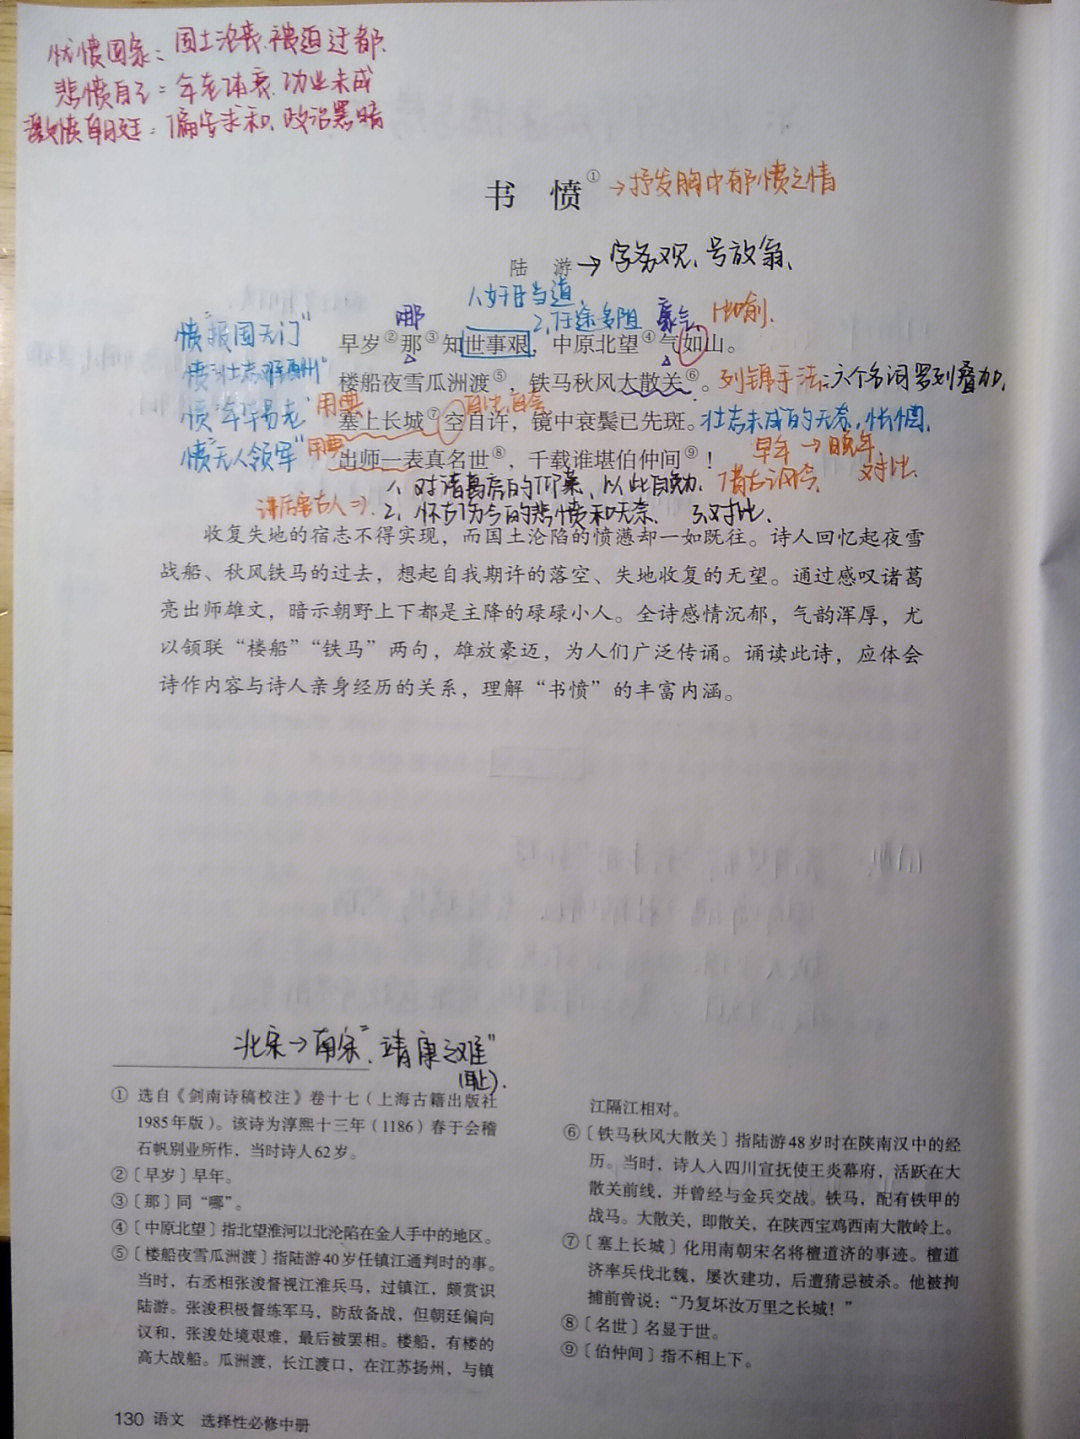 忧愤国家：国土沦丧、被迫迁都、
悲愤自己：年老体衰、功业未成
激愤朝廷：偏安求和、政治黑暗
书 愤①→抒发胸中郁愤之情
陆 游→字务观、号放翁、
1、奸臣当道、
2、仕途多阻
那
豪气
比喻、
愤“报国无门”
早岁②那③知世事艰，中原北望④气如山。
愤“壮志难酬”
楼船夜雪瓜洲渡⑤，铁马秋风大散关⑥。列锦手法：六个名词罗列叠加、
愤“年华易老”用典
塞上长城⑦空自许，镜中衰鬓已先斑。壮志未成的无奈，怅惘、
愤“无人领军”用典
早年→晚年
对比、
出师一表真名世⑧，千载谁堪伯仲间⑨！
1、对诸葛亮的仰慕、以此自勉、借古讽今、
2、怀古伤今的悲愤和无奈、3、对比、
收复失地的宿志不得实现，而国土沦陷的愤懑却一如既往。诗人回忆起夜雪
战船、秋风铁马的过去，想起自我期许的落空、失地收复的无望。通过感叹诸葛
亮出师雄文，暗示朝野上下都是主降的碌碌小人。全诗感情沉郁，气韵浑厚，尤
以颔联“楼船”“铁马”两句，雄放豪迈，为人们广泛传诵。诵读此诗，应体会
诗作内容与诗人亲身经历的关系，理解“书愤”的丰富内涵。
北宋→南宋、“靖康之难”
（耻）、
① 选自《剑南诗稿校注》卷十七（上海古籍出版社
1985年版）。该诗为淳熙十三年（1186）春于会稽
石帆别业所作，当时诗人62岁。
②〔早岁〕早年。
③〔那〕同“哪”。
④〔中原北望〕指北望淮河以北沦陷在金人手中的地区。
⑤〔楼船夜雪瓜洲渡〕指陆游40岁任镇江通判时的事。
当时，右丞相张浚督视江淮兵马，过镇江，颇赏识
陆游。张浚积极督练军马，防敌备战，但朝廷偏向
议和，张浚处境艰难，最后被罢相。楼船，有楼的
高大战船。瓜洲渡，长江渡口，在江苏扬州，与镇
江隔江相对。
⑥〔铁马秋风大散关〕指陆游48岁时在陕南汉中的经
历。当时，诗人入四川宣抚使王炎幕府，活跃在大
散关前线，并曾经与金兵交战。铁马，配有铁甲的
战马。大散关，即散关，在陕西宝鸡西南大散岭上。
⑦〔塞上长城〕化用南朝宋名将檀道济的事迹。檀道
济率兵伐北魏，屡次建功，后遭猜忌被杀。他被拘
捕前曾说：“乃复坏汝万里之长城！”
⑧〔名世〕名显于世。
⑨〔伯仲间〕指不相上下。
130 语文 选择性必修中册